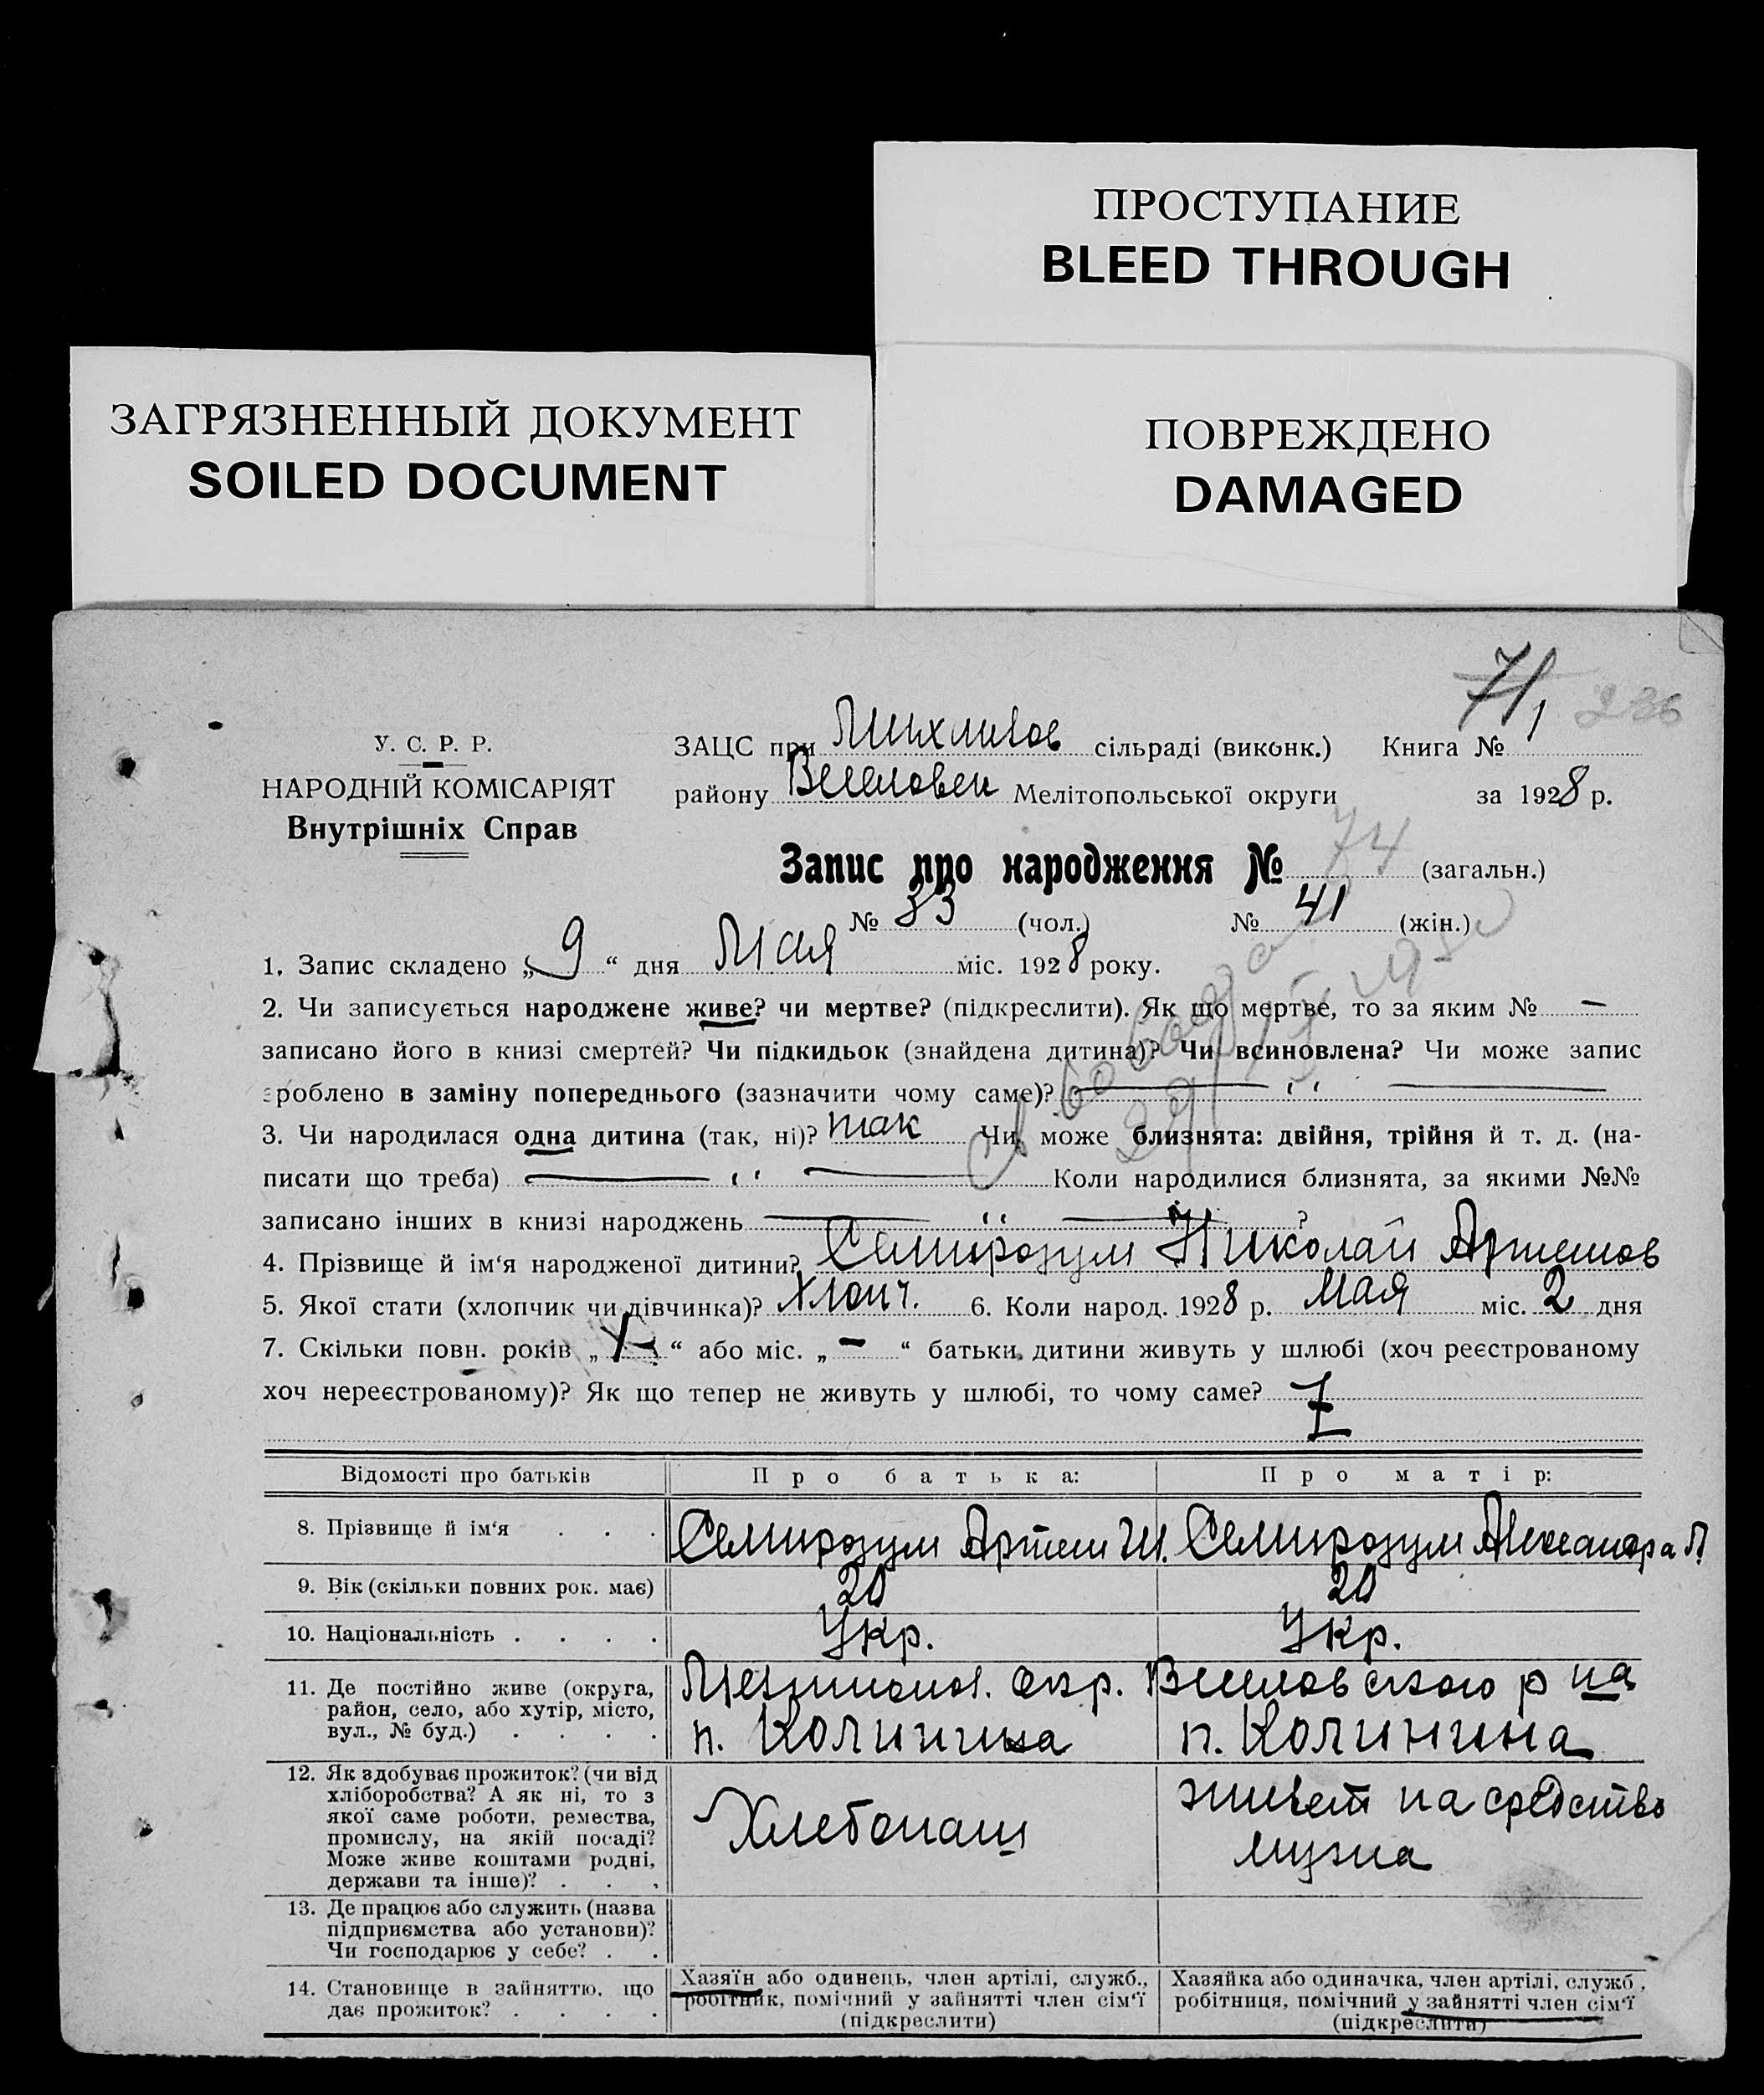 ПРОСТУПАНИЕ
BLEED THROUGH
ЗАГРЯЗНЕННЫЙ ДОКУМЕНТ
SOILED DOCUMENT
ПОВРЕЖДЕНО
DAMAGED
71/1 226
У. С. Р. Р.
НАРОДНІЙ КОМІСАРІЯТ
Внутрішніх Справ
ЗАЦС при сільраді (виконк.) Книга №
району Веселовск Мелітопольської округи за 1928 р.
Запис про народження № 74 (загальн.)
№ 33 (чол.) № 41 (жін.)
1. Запис складено „9“ дня Мая міс. 1928 року.
2. Чи записується народжене живе? чи мертве? (підкреслити). Як що мертве, то за яким № —
записано його в книзі смертей? Чи підкидьок (знайдена дитина)? Чи всиновлена? Чи може запис
зроблено в заміну попереднього (зазначити чому саме)? — " —
3. Чи народилася одна дитина (так, ні)? так Чи може близнята: двійня, трійня й т. д. (на-
писати що треба) — " — Коли народилися близнята, за якими №№
записано інших в книзі народжень — " — ?
4. Прізвище й ім‘я народженої дитини? Семирозум Николай Артемов
5. Якої стати (хлопчик чи дівчинка)? Хлопч. 6. Коли народ. 1928 р. Мая міс. 2 дня
7. Скільки повн. років „ “ або міс. „ – “ батьки дитини живуть у шлюбі (хоч реєстрованому
хоч нереєстрованому)? Як що тепер не живуть у шлюбі, то чому саме?
Відомості про батьків Про батька: Про матір:
8. Прізвище й ім‘я . . . Семирозум Артем И. Семирозум Александра П.
9. Вік (скільки повних рок. має) 20 20
10. Національність . . . . Укр. Укр.
11. Де постійно живе (округа,
район, село, або хутір, місто,
вул., № буд.) . . . .
Мелитопол. окр. Веселовского р на
п. Колинина п. Колинина
12. Як здобуває прожиток? (чи від
хліборобства? А як ні, то з
якої саме роботи, ремества,
промислу, на якій посаді?
Може живе коштами родні,
держави та інше)? . . .
Хлебопаш
живет на средство
мужа
13. Де працює або служить (назва
підприємства або установи)?
Чи господарює у себе? . .
14. Становище в зайняттю, що
дає прожиток? . . . .
Хазяїн або одинець, член артілі, служб.,
робітник, помічний у зайнятті член сім‘ї
(підкреслити)
Хазяйка або одиначка, член артілі, служб.,
робітниця, помічний у зайнятті член сім‘ї
(підкреслити)